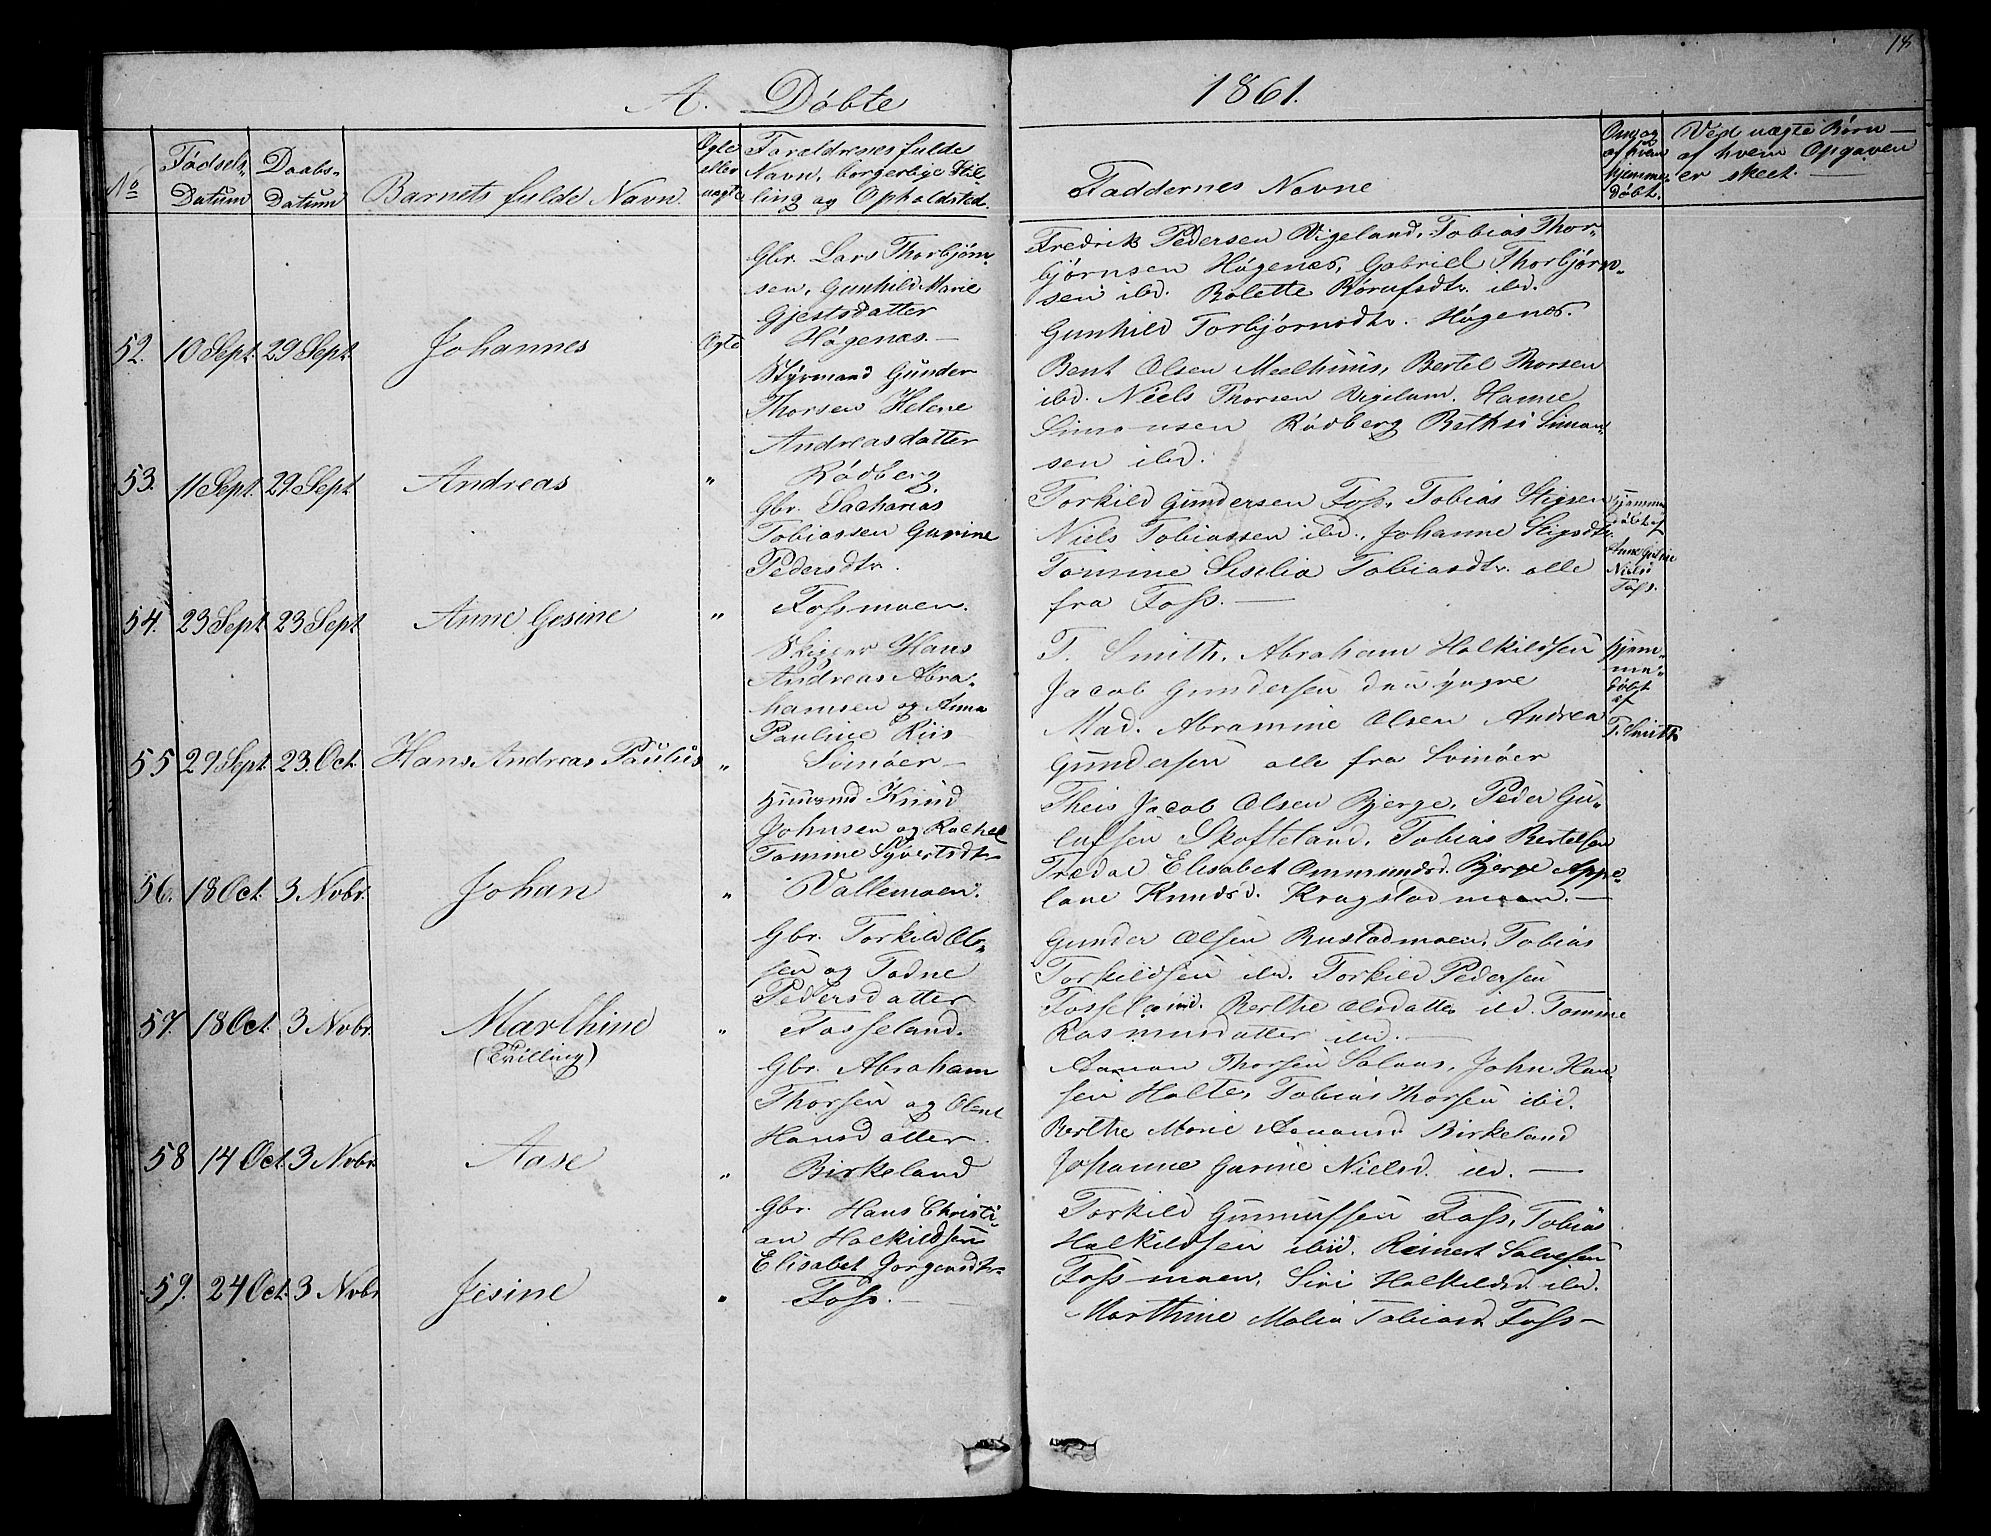 18
A. Döbte 1861.
No
Födsels-
Datum
Daabs-
Datum
Barnets fulde Navn
Ægte
eller
uægte
Foreldrenes fulde
Navn, borgerlige Stil-
ling og Opholdsted.
Faddernes Navne
Om og
af hvem
hjemme-
döbt.
Ved uægte Börn
af hvem Opgaven
er skeet.
52. 10 Sept. 29 Sept. Johannes Ægte
Gbr. Lars Thorbjörn-
sen, Gunhild Marie
Gjestsdatter
Högenæs.
Fredrik Pedersen Vigeland, Tobias Thor-
björnsen Högenæs, Gabriel Thorbjörn-
sen ibd. Bolette Börufsdtr. ibd.
Gunhild Torbjörnsdtr. Högenæs.
53. 11 Sept. 29 Sept Andreas "
Styrmand Gunder
Thorsen Helene
Andreasdatter
Rödberg.
Bent Olsen Meelhuus, Bertel Thorsen
ibd. Niels Thorsen Vigelum. Hanne
Simonsen Rödberg Bethsi Simon-
sen ibd.
54. 23 Sept 23 Sept Anne Gesine "
Gbr. Sacharias
Tobiassen Gurine
Pedersdtr.
Fossmoen.
Torkild Gundersen Foss, Tobias Stigsen
Niels Tobiassen ibd., Johanne Stigsdtr.
Tomine Siselia Tobiasdtr. alle
fra Foss.
Hjemme
döbt af
Anne
Niels
Foss.
55 29 Sept. 23. Oct. Hans Andreas Paulus "
Skipper Hans
Andreas Abra-
hamsen og Anna
Pauline Riis
Svinöer
T. Smith, Abraham Halkildsen
Jacob Gundersen den yngre
Mad. Abramine Olsen Andrea
Gundersen alle fra Svinöer
hjem-
me-
döbt
af
T. Smith
56. 18 Oct. 3 Nvbr. Johan "
Huusmd Knud
Johnsen og Rachel
Tomine Syvertsdtr
Vallemoen.
Theis Jacob Olsen Bjerge, Peder Gu-
lufsen Skofteland, Tobias Bertelsen
Tredal Elisabet Ommundsd. Bjerge Appe-
lone Knudsd. Kragstadmoen.
57. 18 Oct. 3 Nvbr. Marthine "
(Tvilling)
Gbr. Torkild Ol-
sen og Todne
Pedersdatter
Fosseland.
Gunder Olsen Rustadmoen, Tobias
Torkildsen ibd. Torkild Pedersen
Fosseland. Berthe Olsdatter ibd. Tomine
Rasmusdatter ibd.
58 14 Oct. 3 Nvbr Aase "
Gbr. Abraham
Thorsen og Olene
Hansdatter
Birkeland
Aanon Thorsen Salaas, John Han-
sen Holte, Tobias Thorsen ibid.
Berthe Marie Aanonsd. Birkeland
Johanne Gurine Nielsd. ibd.
59. 24 Oct. 3 Nvbr Jesine "
Gbr. Hans Christi-
an Halkildsen
Elisabet Jorgensdtr
Foss.
Torkild Gunnufsen Foss, Tobias
Halkildsen ibid. Reinert Salvesen
Fossmoen, Siri Halkildsd. ibd.
Marthine Malia Tobiasd. Foss